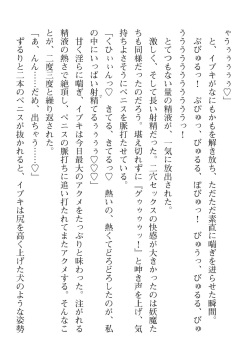 ゃうぅぅぅぅぅ♡」
と、イブキがなにもかもを解き放ち、ただただ素直に喘ぎを迸らせた瞬間。
ぶぴゅるっ！　びゅるるっ、びゅるる、ぼびゅるっ！　ぶびゅるる、びゅ
うううううううううううううっ！
とてつもない量の精液が、一気に放出された。
激しく、そして長い射精だった。二穴セックスの快感が大きかったのは妖魔た
ちも同様だったのだろう。堪え切れずに『グウゥゥゥッ！』と呻き声を上げ、気
持ちよさそうにペニスを脈打たせている。
「くひぃぃんっ♡　きてる、きてるっ♡　熱いの、熱くてどろどろしたのが、私
の中にいっぱい射精てるぅぅぅぅ♡♡」
甘く淫らに喘ぎ、イブキは今日最大のアクメをたっぷりと味わった。注がれる
精液の熱さで絶頂し、ペニスの脈打ちに追い打たれてまたアクメする。そんなこ
とが、二度三度と繰り返された。
「あ、んん……だめ、出ちゃう……♡」
ずるりと二本のペニスが抜かれると、イブキは尻を高く上げた犬のような姿勢